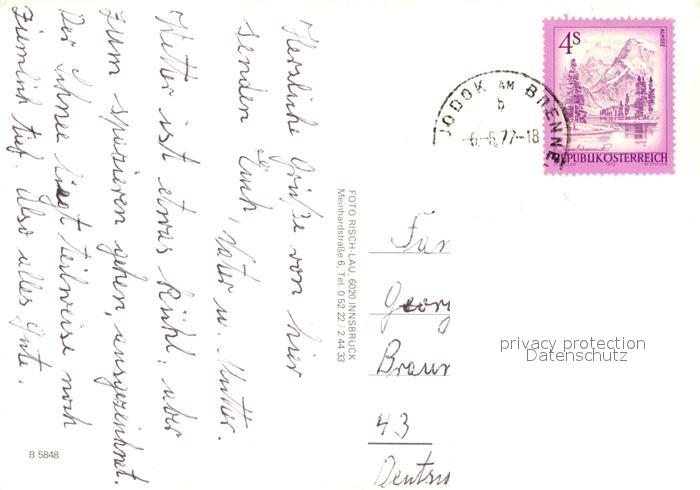 Herzliche Grüße von hier
senden Euch, Vater u. Mutter.
Wetter ist etwas kühl, aber
zum spazieren gehen, ausgezeichnet.
Der Schnee liegt teilweise noch
ziemlich tief. Also alles Gute.
B 5848
FOTO RISCH-LAU, 6020 INNSBRUCK
Meinhardstraße 6, Tel. 0 52 22 / 2 44 33
4S
ALMSEE
REPUBLIK ÖSTERREICH
JODOK AM BRENNE
b
-6.-6.77-18
Fam
Georg
Braun
43
Deuts
privacy protection
Datenschutz